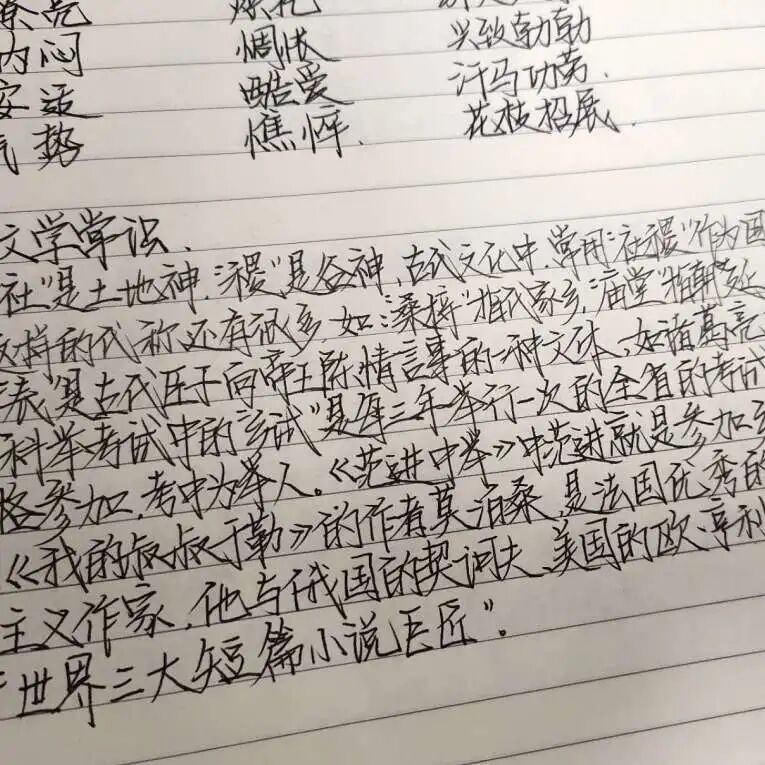 嘹亮
内闷 惆怅 兴致勃勃
安适 酷爱 汗马功劳.
气势 憔悴. 花枝招展.
文学常识.
社"是土地神,"稷"是谷神,古代文化中,常用"社稷"作为国
这样的代称还有很多,如"桑梓"指代家乡,"庙堂"指朝廷
"表"是古代臣子向帝王陈情言事的一种文体,如诸葛亮
科举考试中的"乡试"是每三年举行一次的全省的考试
格参加,考中为举人。《范进中举》中范进就是参加
《我的叔叔于勒》的作者莫泊桑,是法国优秀的
主义作家,他与俄国的契诃夫、美国的欧·亨利
世界三大短篇小说巨匠"。